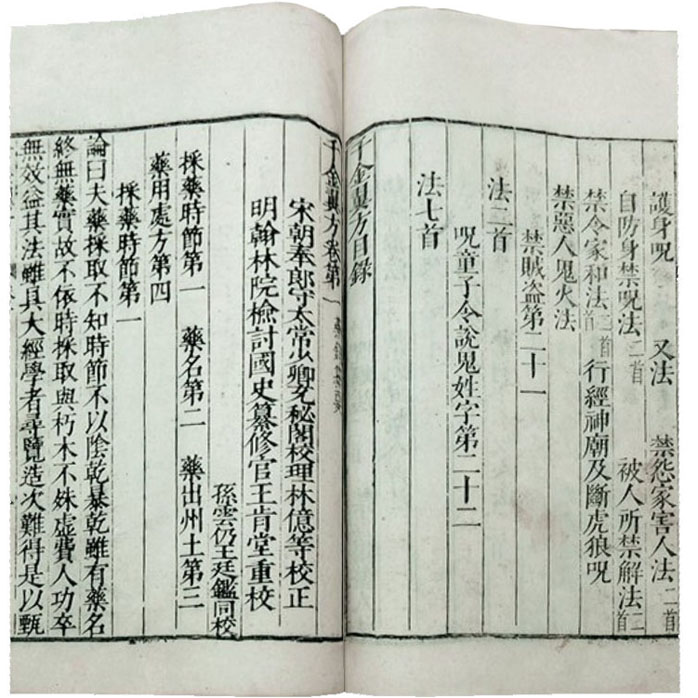 護身呪 又法 禁怨家害人法二首
自防身禁呪法二首 被人所禁解法二首
禁令家和法二首 行經神廟及斷虎狼呪
禁惡人鬼火法
禁賊盗第二十一
法二首
呪童子令說鬼姓字第二十二
法七首
千金翼方目錄
千金翼方卷第一
宋朝奉郎守太常少卿充秘閣校理林億等校正
明翰林院檢討國史纂修官王肯堂重校
孫雲仍王廷鑑同校
採藥時節第一 藥名第二 藥出州土第三
藥用處方第四
採藥時節第一
論曰夫藥採取不知時節不以陰乾暴乾雖有藥名
終無藥實故不依時採取與朽木不殊虛費人功卒
無效益其法雖具大經學者尋覽造次難得是以甄